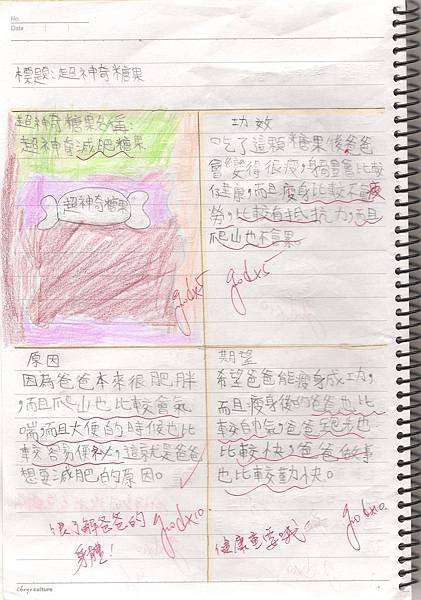 No.
Date
標題:超神奇糖果
超神奇糖果名稱:
超神奇減肥糖果
超神奇糖果
goodx5
功效
吃了這顆糖果後爸爸
會變得很瘦,身體會比較
健康,而且瘦身比較不會疲
勞,比較有抵抗力,而且
爬山也不會累。
goodx5
原因
因為爸爸本來很肥胖
,而且爬山也比較會氣
喘,而且大便的時候也比
較容易便秘,這就是爸爸
想要減肥的原因。
很了解爸爸的
身體!
goodx10
期望
希望爸爸能瘦身成功,
而且瘦身後的爸爸也比
較帥氣,爸爸跑步也
比較快,爸爸做事
也比較勤快。
健康重要哦~
goodx10